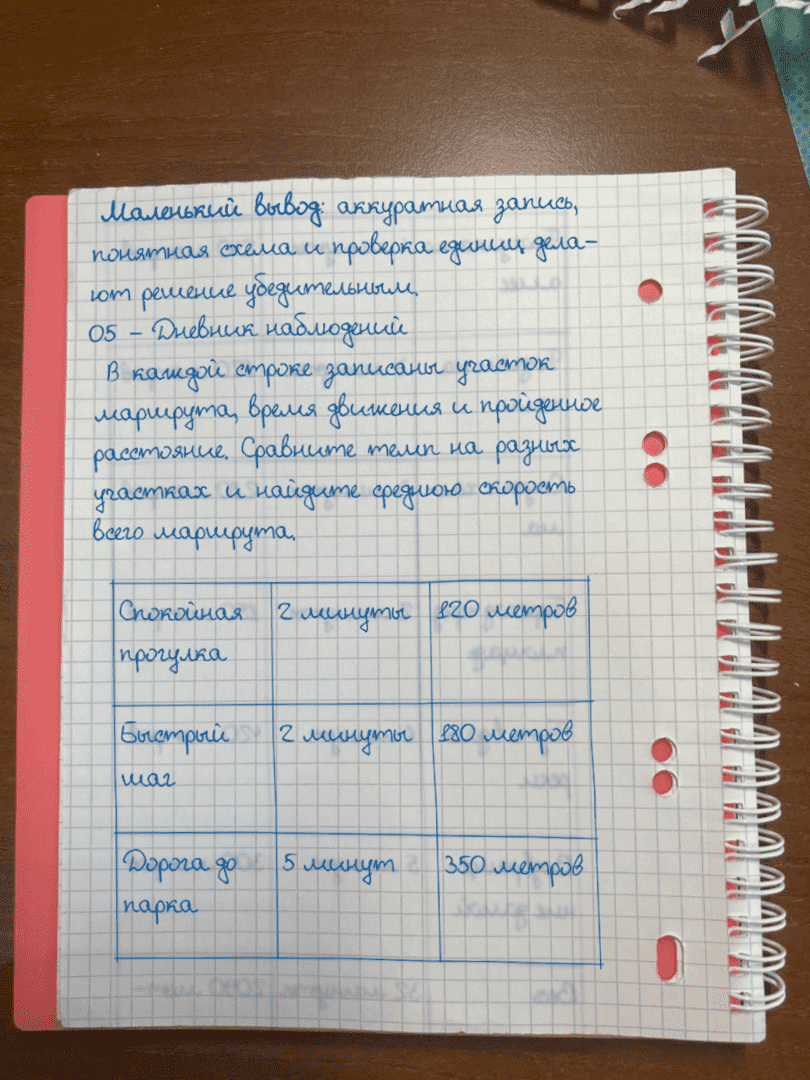 Маленький вывод: аккуратная запись,
понятная схема и проверка единиц дела-
ют решение убедительным.
05 - Дневник наблюдений
В каждой строке записаны участок
маршрута, время движения и пройденное
расстояние. Сравните темп на разных
участках и найдите среднюю скорость
всего маршрута.
Спокойная 2 минуты 120 метров
прогулка
Быстрый 2 минуты 180 метров
шаг
Дорога до 5 минут 350 метров
парка